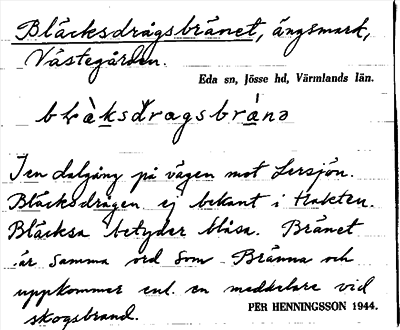 Bläcksdragsbränet, ängsmark,
Västegården.
Eda sn, Jösse hd, Värmlands län.
I en dalgång på vägen mot Lersjön.
Bläcksdragen ej bekant i trakten.
Bläcksa betyder blåsa. Bränet
är samma ord som Bränna och
uppkommer enl. en meddelare vid
skogsbrand.
PER HENNINGSSON 1944.